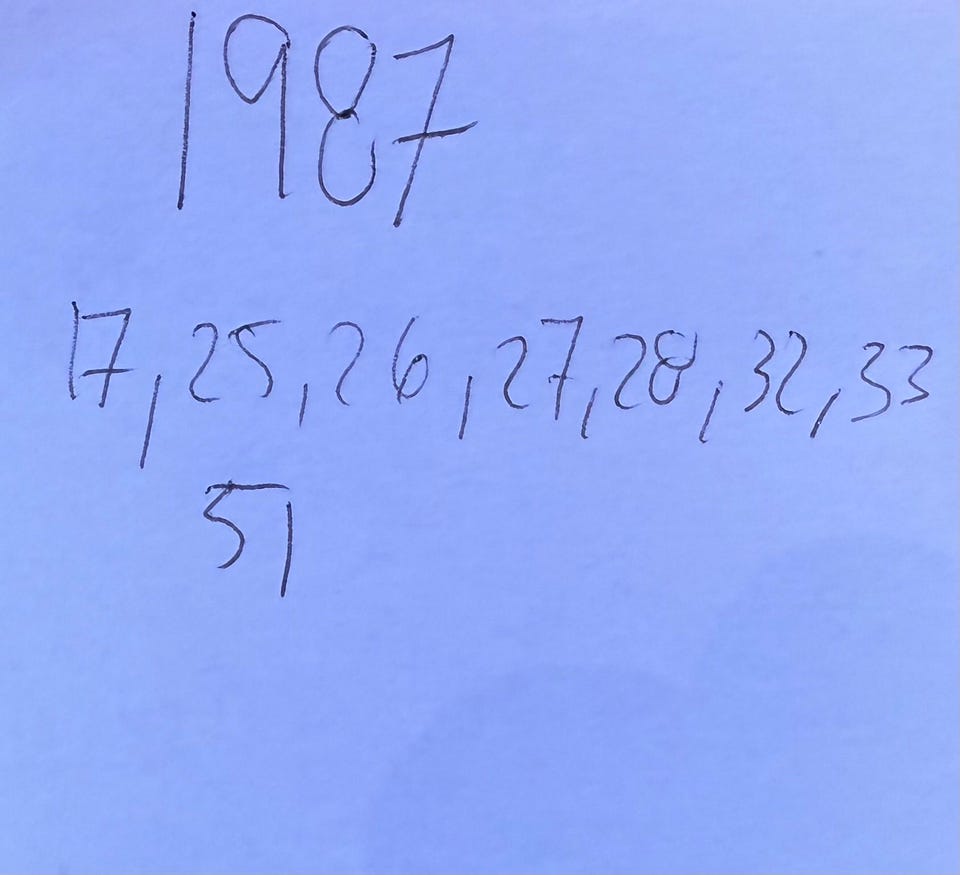 1987
17, 25, 26, 27, 28, 32, 33
51